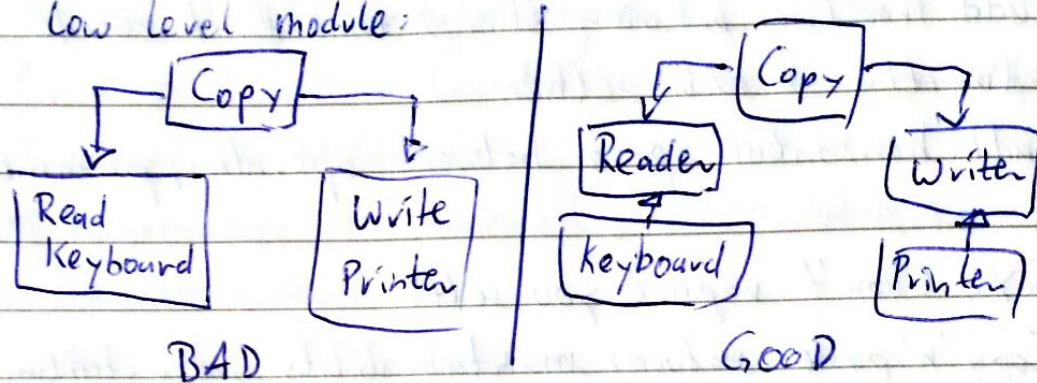 low level module:
Copy
Read
Keyboard
Write
Printer
BAD
Copy
Reader
Writer
Keyboard
Printer
GOOD